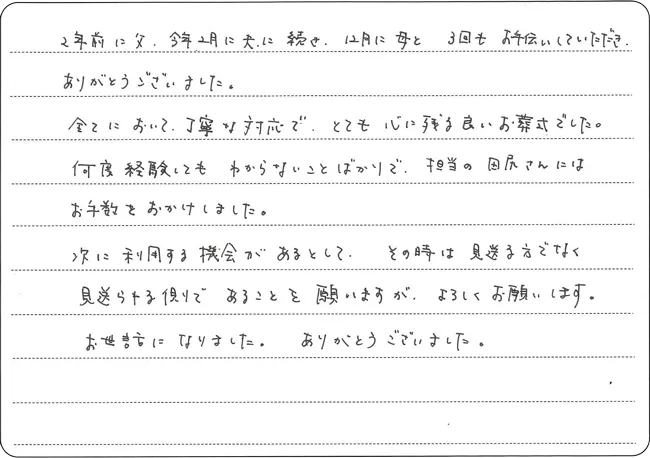 2年前に父、今年2月に夫に続き、12月に母と 3回も お手伝いしていただき、
ありがとうございました。
全てにおいて、丁寧な対応で、とても 心に残る良いお葬式でした。
何度 経験しても わからないことばかりで、担当の 田尻さんには
お手数をおかけしました。
次に 利用する 機会が あるとして、 その時は 見送る方でなく
見送られる側りで あることを 願いますが、よろしくお願いします。
お世話に なりました。 ありがとうございました。